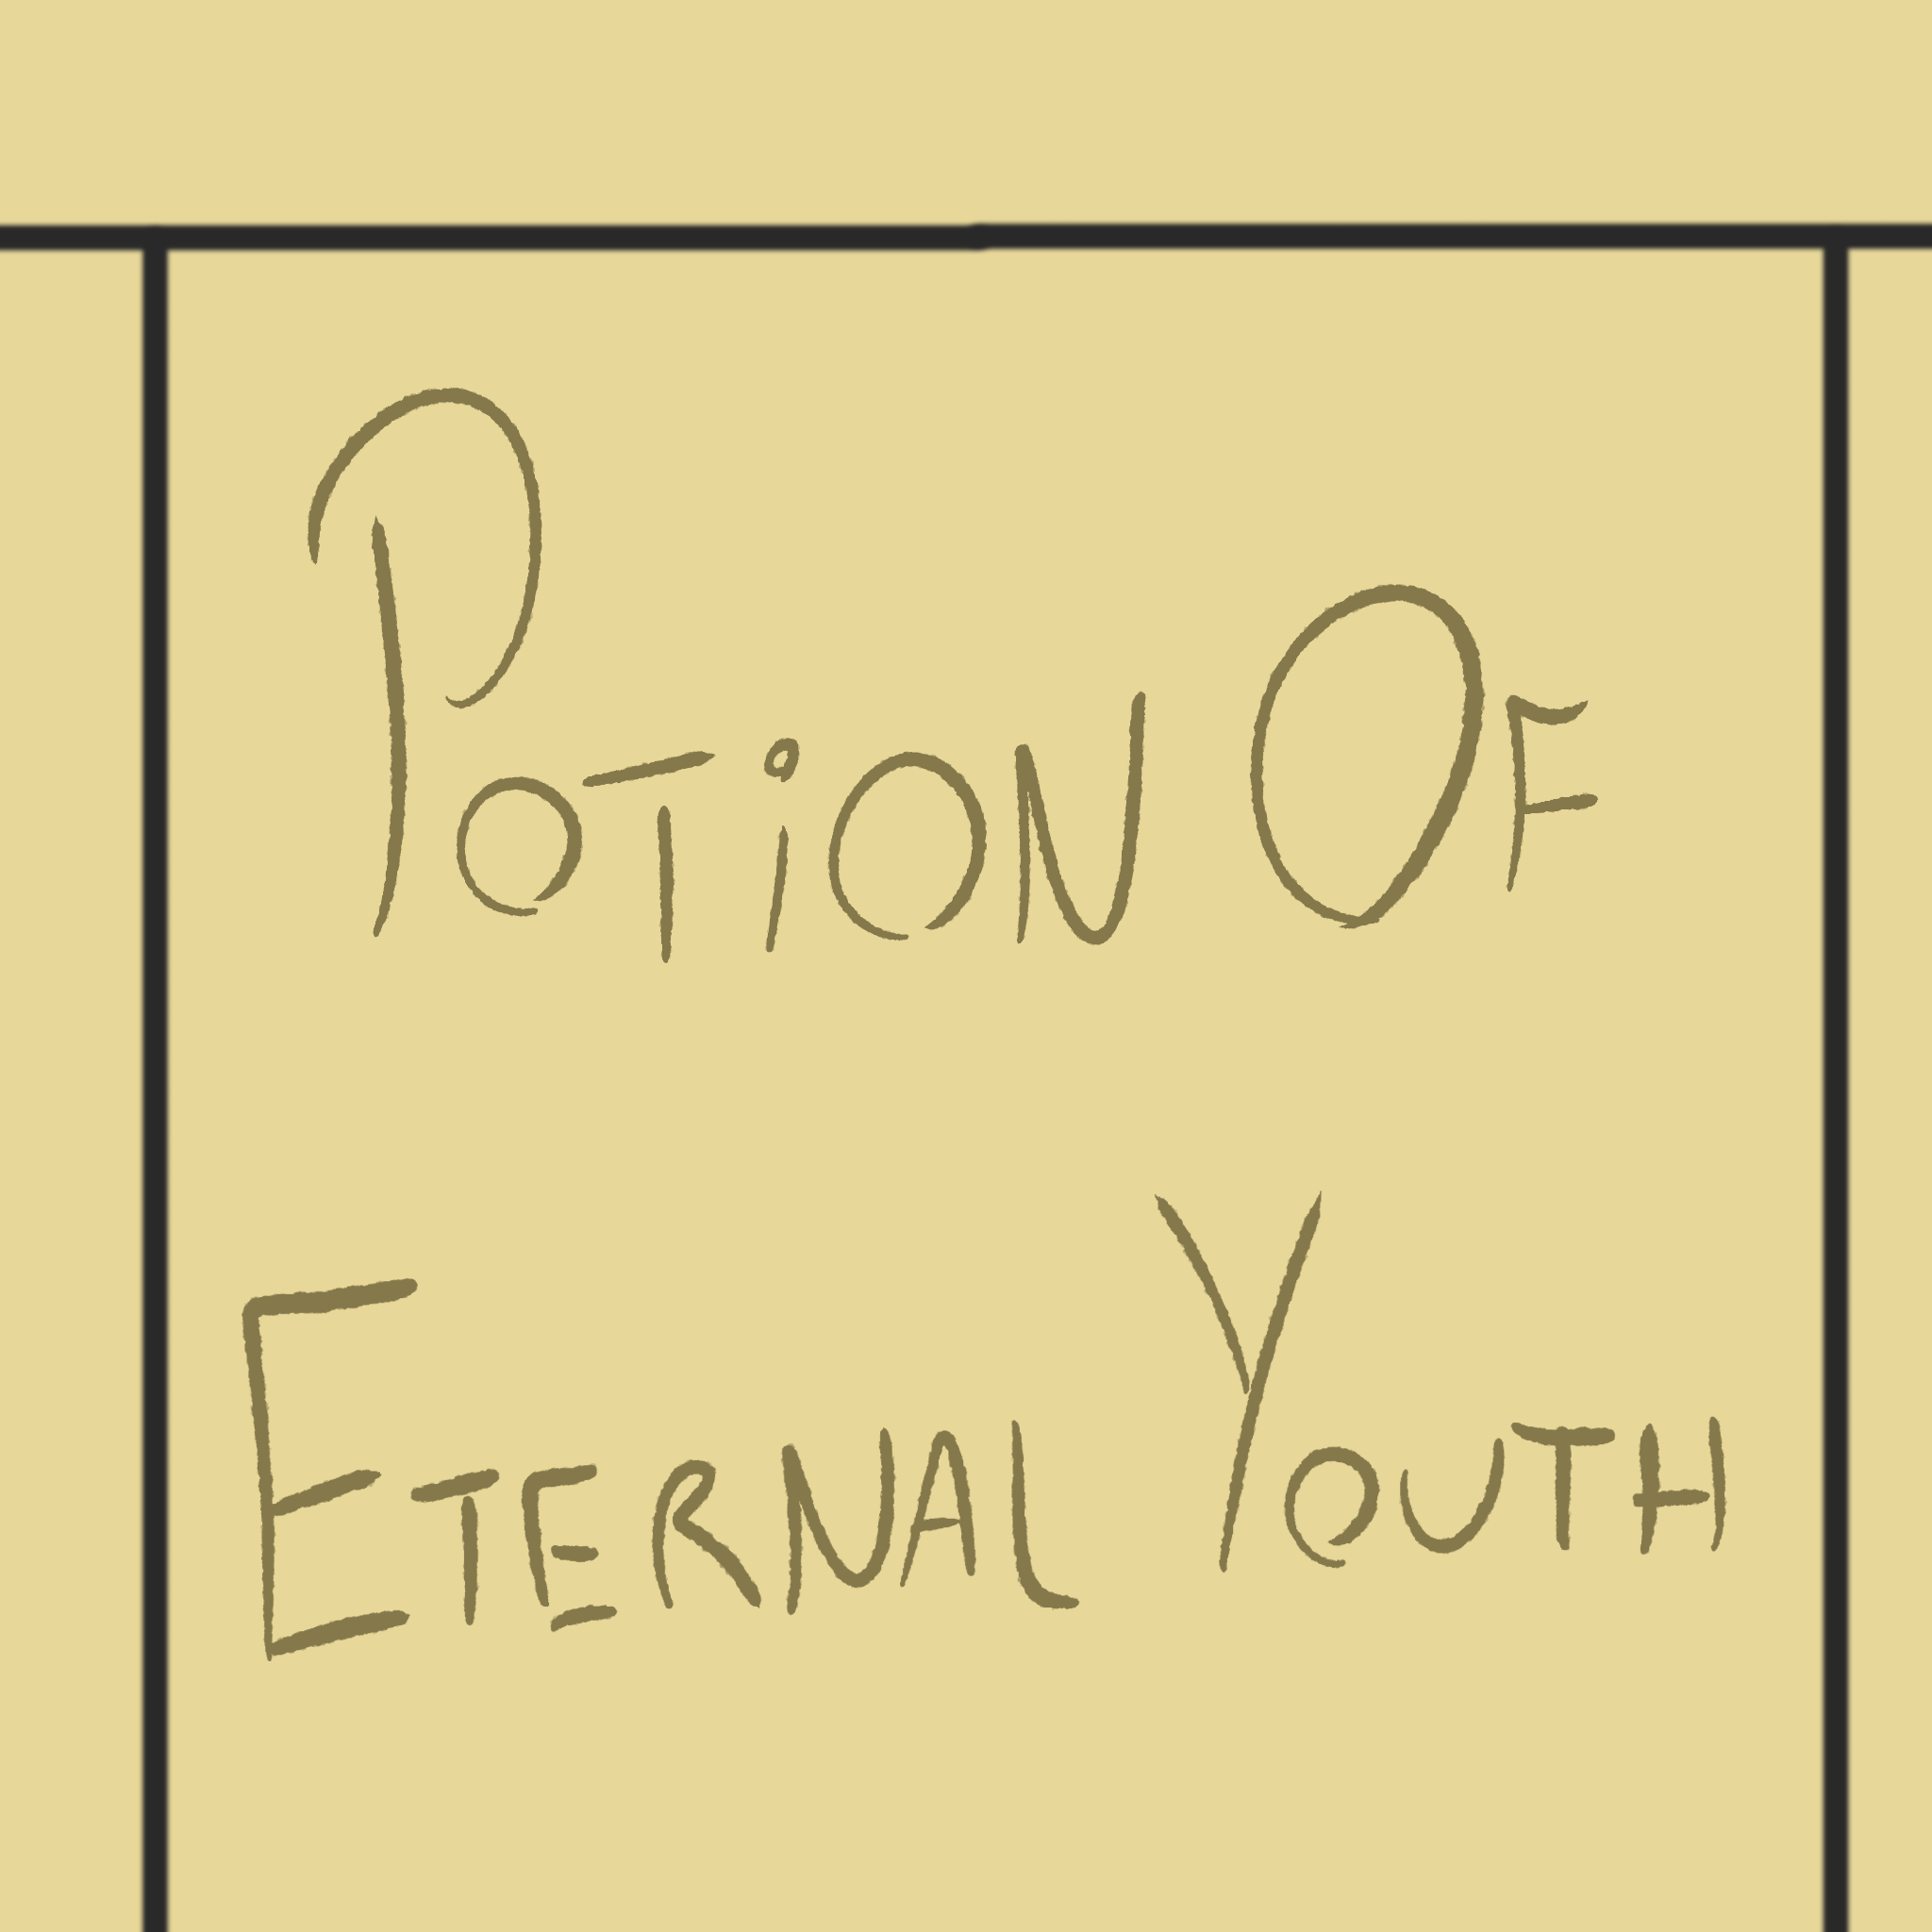 POTiON OF
ETERNAL YOUTH